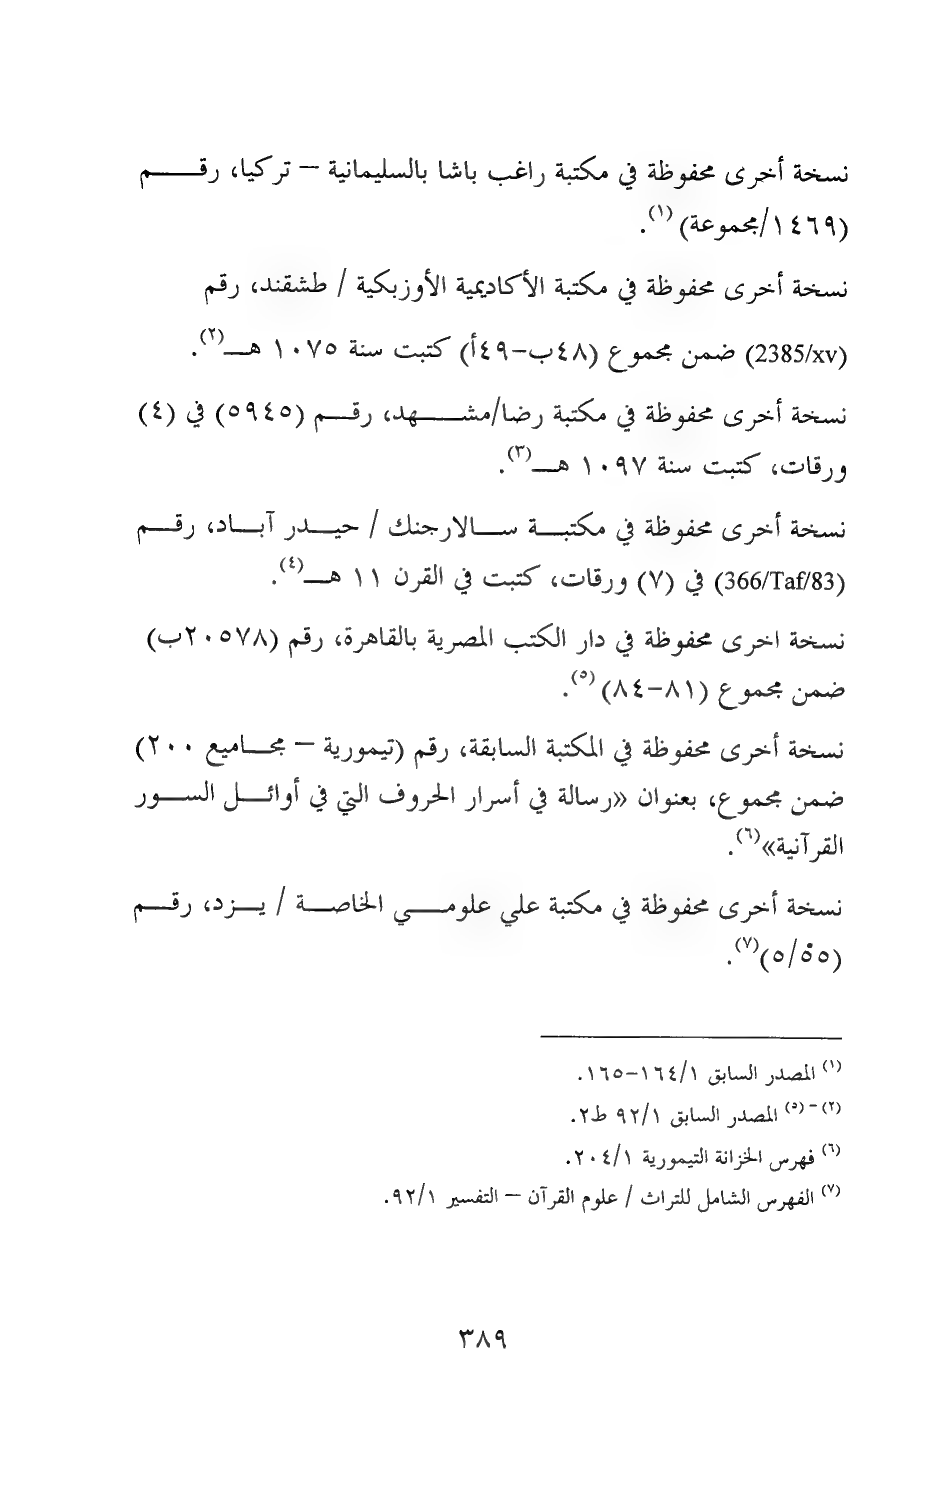 نسخة أخرى محفوظة في مكتبة راغب باشا بالسليمانية – تركيا، رقـــم
(١٤٦٩/مجموعة) (١).
نسخة أخرى محفوظة في مكتبة الأكاديمية الأوزبكية / طشقند، رقم
(2385/xv) ضمن مجموع (٤٨ب-٤٩أ) كتبت سنة ١٠٧٥ هــ(٢).
نسخة أخرى محفوظة في مكتبة رضا/مشـــهد، رقــم (٥٩٤٥) في (٤)
ورقات، كتبت سنة ١٠٩٧ هــ(٣).
نسخة أخرى محفوظة في مكتبــة ســالارجنك / حيــدر آبــاد، رقــم
(366/Taf/83) في (٧) ورقات، كتبت في القرن ١١ هــ(٤).
نسخة اخرى محفوظة في دار الكتب المصرية بالقاهرة، رقم (٢٠٥٧٨ب)
ضمن مجموع (٨١-٨٤) (٥).
نسخة أخرى محفوظة في المكتبة السابقة، رقم (تيمورية – مجــاميع ٢٠٠)
ضمن مجموع، بعنوان «رسالة في أسرار الحروف التي في أوائــل الســور
القرآنية»(٦).
نسخة أخرى محفوظة في مكتبة علي علومــي الخاصــة / يــزد، رقــم
(٥/٥٥)(٧).
(١) المصدر السابق ١/١٦٤-١٦٥.
(٢) - (٥) المصدر السابق ٩٢/١ ط٢.
(٦) فهرس الخزانة التيمورية ٢٠٤/١.
(٧) الفهرس الشامل للتراث / علوم القرآن – التفسير ٩٢/١.
٣٨٩